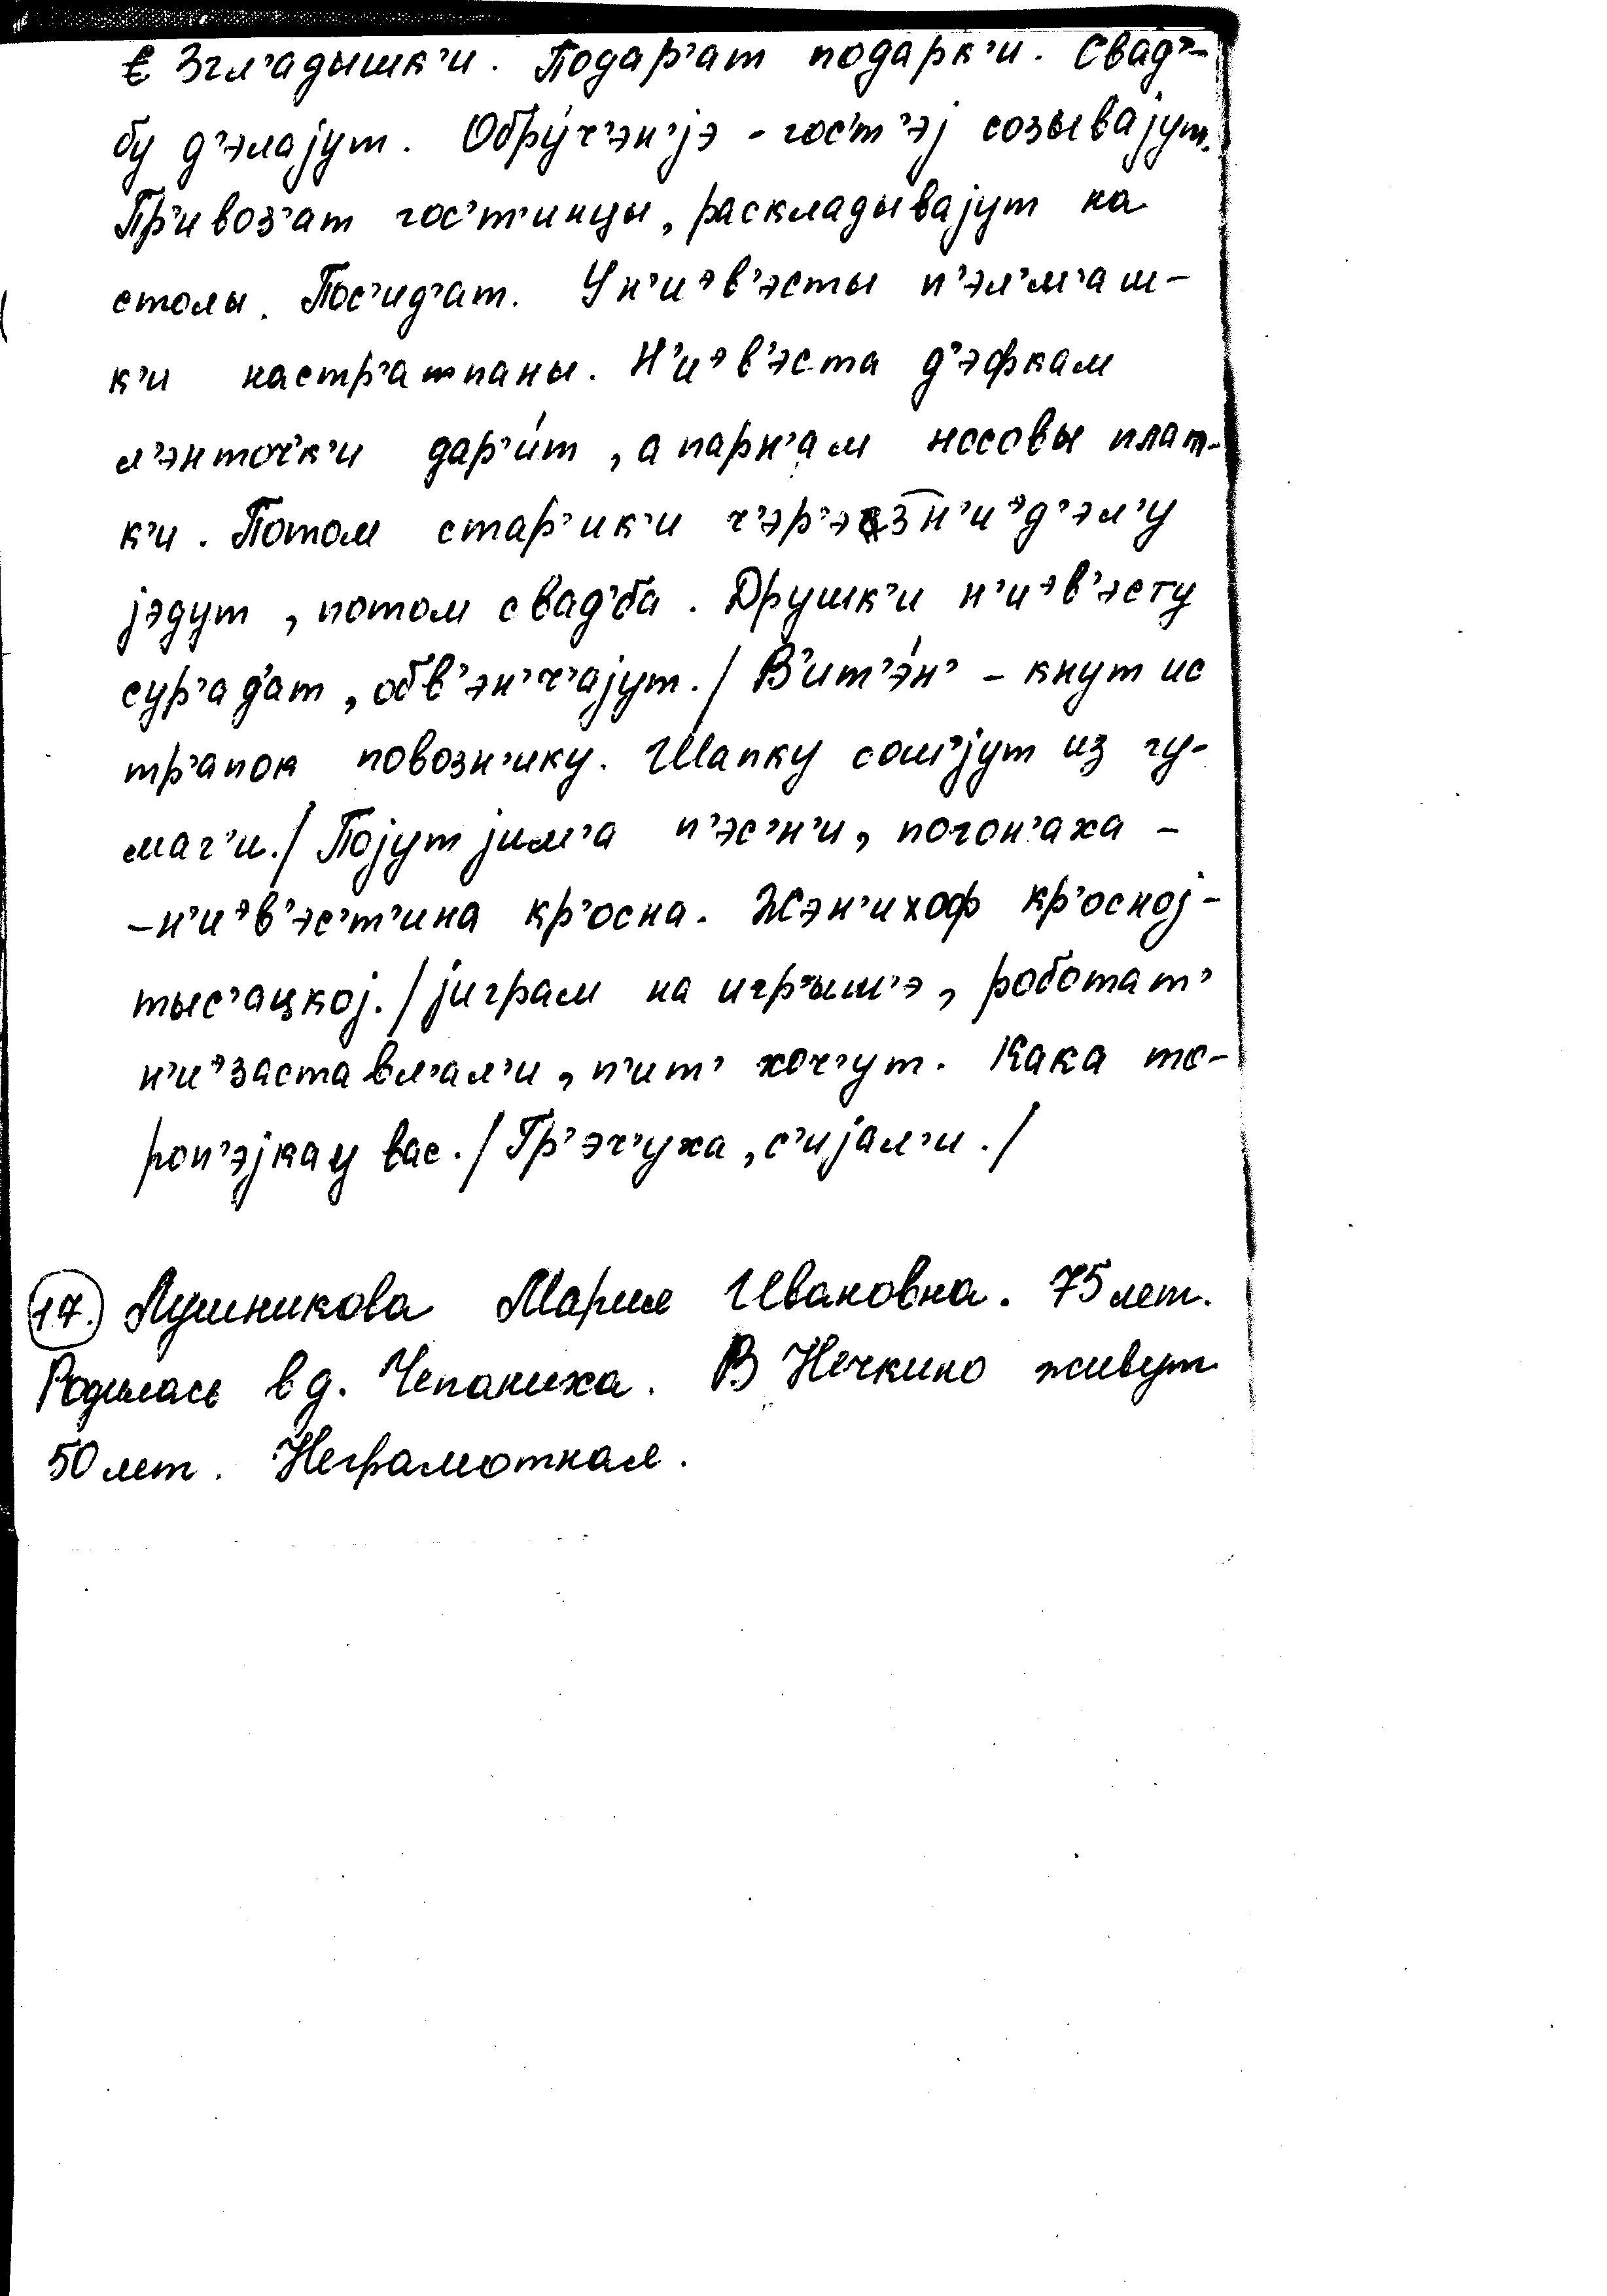 Згл'адышк'и. Подар'ат подарк'и. Свад'-
бу д'элајут. Обру́ч'эн'јэ - гос'т'эј созывајут.
Пр'ивоз'ат гос'т'инцы, раскладывајут на
столы. Пос'ид'ат. У н'иэв'эсты п'эл'м'аш-
к'и настр'апаны. Н'иэв'эста д'эфкам
л'энточ'к'и дар'и́т, а парн'ам носовы плат-
к'и. Потом стар'ик'и ч'эр'эз н'иэд'эл'у
јэдут, потом свад'ба. Друшк'и н'иэв'эсту
сур'ад'ат, обв'эн'ч'ајут. / В'ит'э́н' - кнут ис
тр'апок повозн'ику. Шапку сошјут из гу-
маг'и. / Појут јим'а п'эс'н'и, погон'аха -
- н'иэв'эс'т'ина кр'осна. Жэн'ихоф кр'осној -
тыс'ацкој. / јиграм на игр'ыш'э, роботат'
н'иэ заставл'ал'и, п'ит' хоч'ут. Кака то-
роп'эјка у вас. / Гр'эч'уха, с'ијал'и. /
17. Лушникова Мария Ивановна. 75 лет.
Родилась в д. Чепаниха. В Нечкино живет
50 лет. Неграмотная.